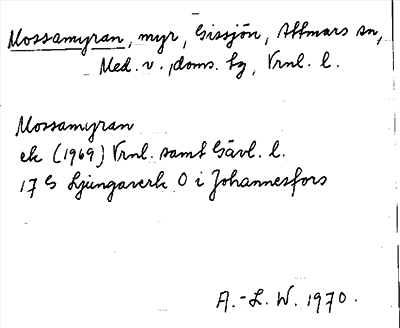 Mossamyran, myr, Gissjön, Attmars sn,
Med. v. doms. bg, Vrnl. l.
Mossamyran
ek (1969) Vrnl. samt Gävl. l.
17 G Ljungaverk O i Johannesfors
A.-L. W. 1970.